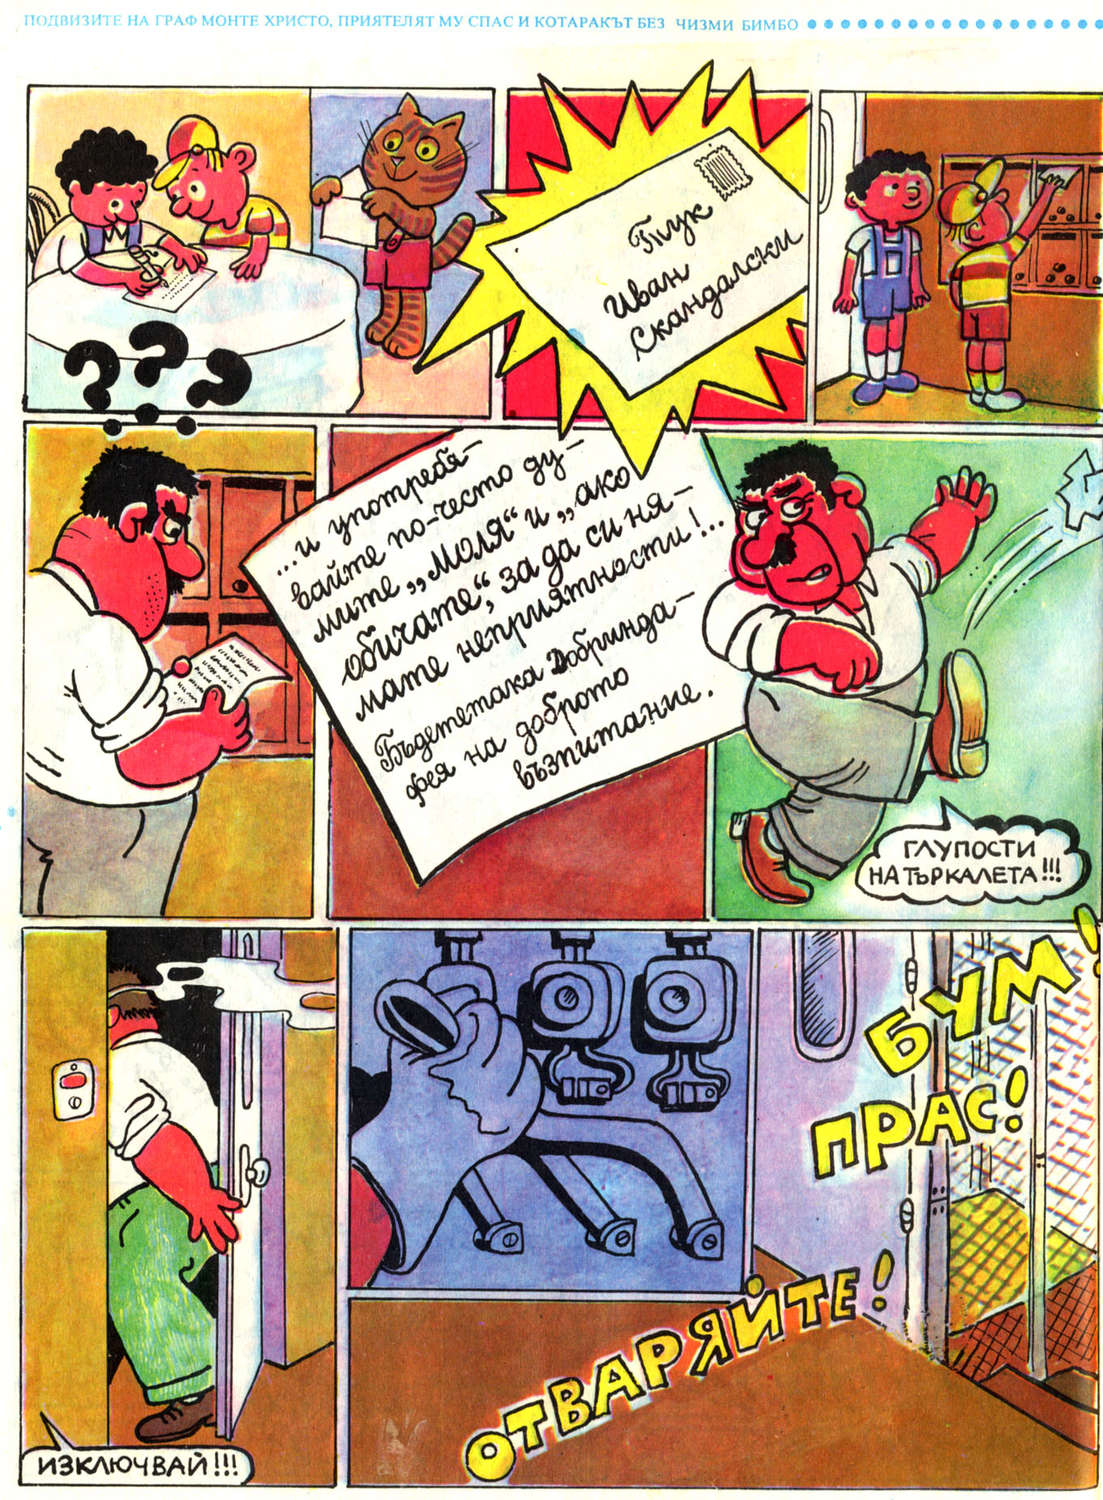 ПОДВИЗИТЕ НА ГРАФ МОНТЕ ХРИСТО, ПРИЯТЕЛЯТ МУ СПАС И КОТАРАКЪТ БЕЗ ЧИЗМИ БИМБО
Тук
Иван
Скандалски
???
...и употребя-
вайте по-често ду-
мите „Моля“ и „ако
обичате“, за да си ня-
мате неприятности!...
Бъдететака Добринда-
фея на доброто
възпитание.
ГЛУПОСТИ
НА ТЪРКАЛЕТА!!!
ИЗКЛЮЧВАЙ!!!
БУМ!
ПРАС!
ОТВАРЯЙТЕ!